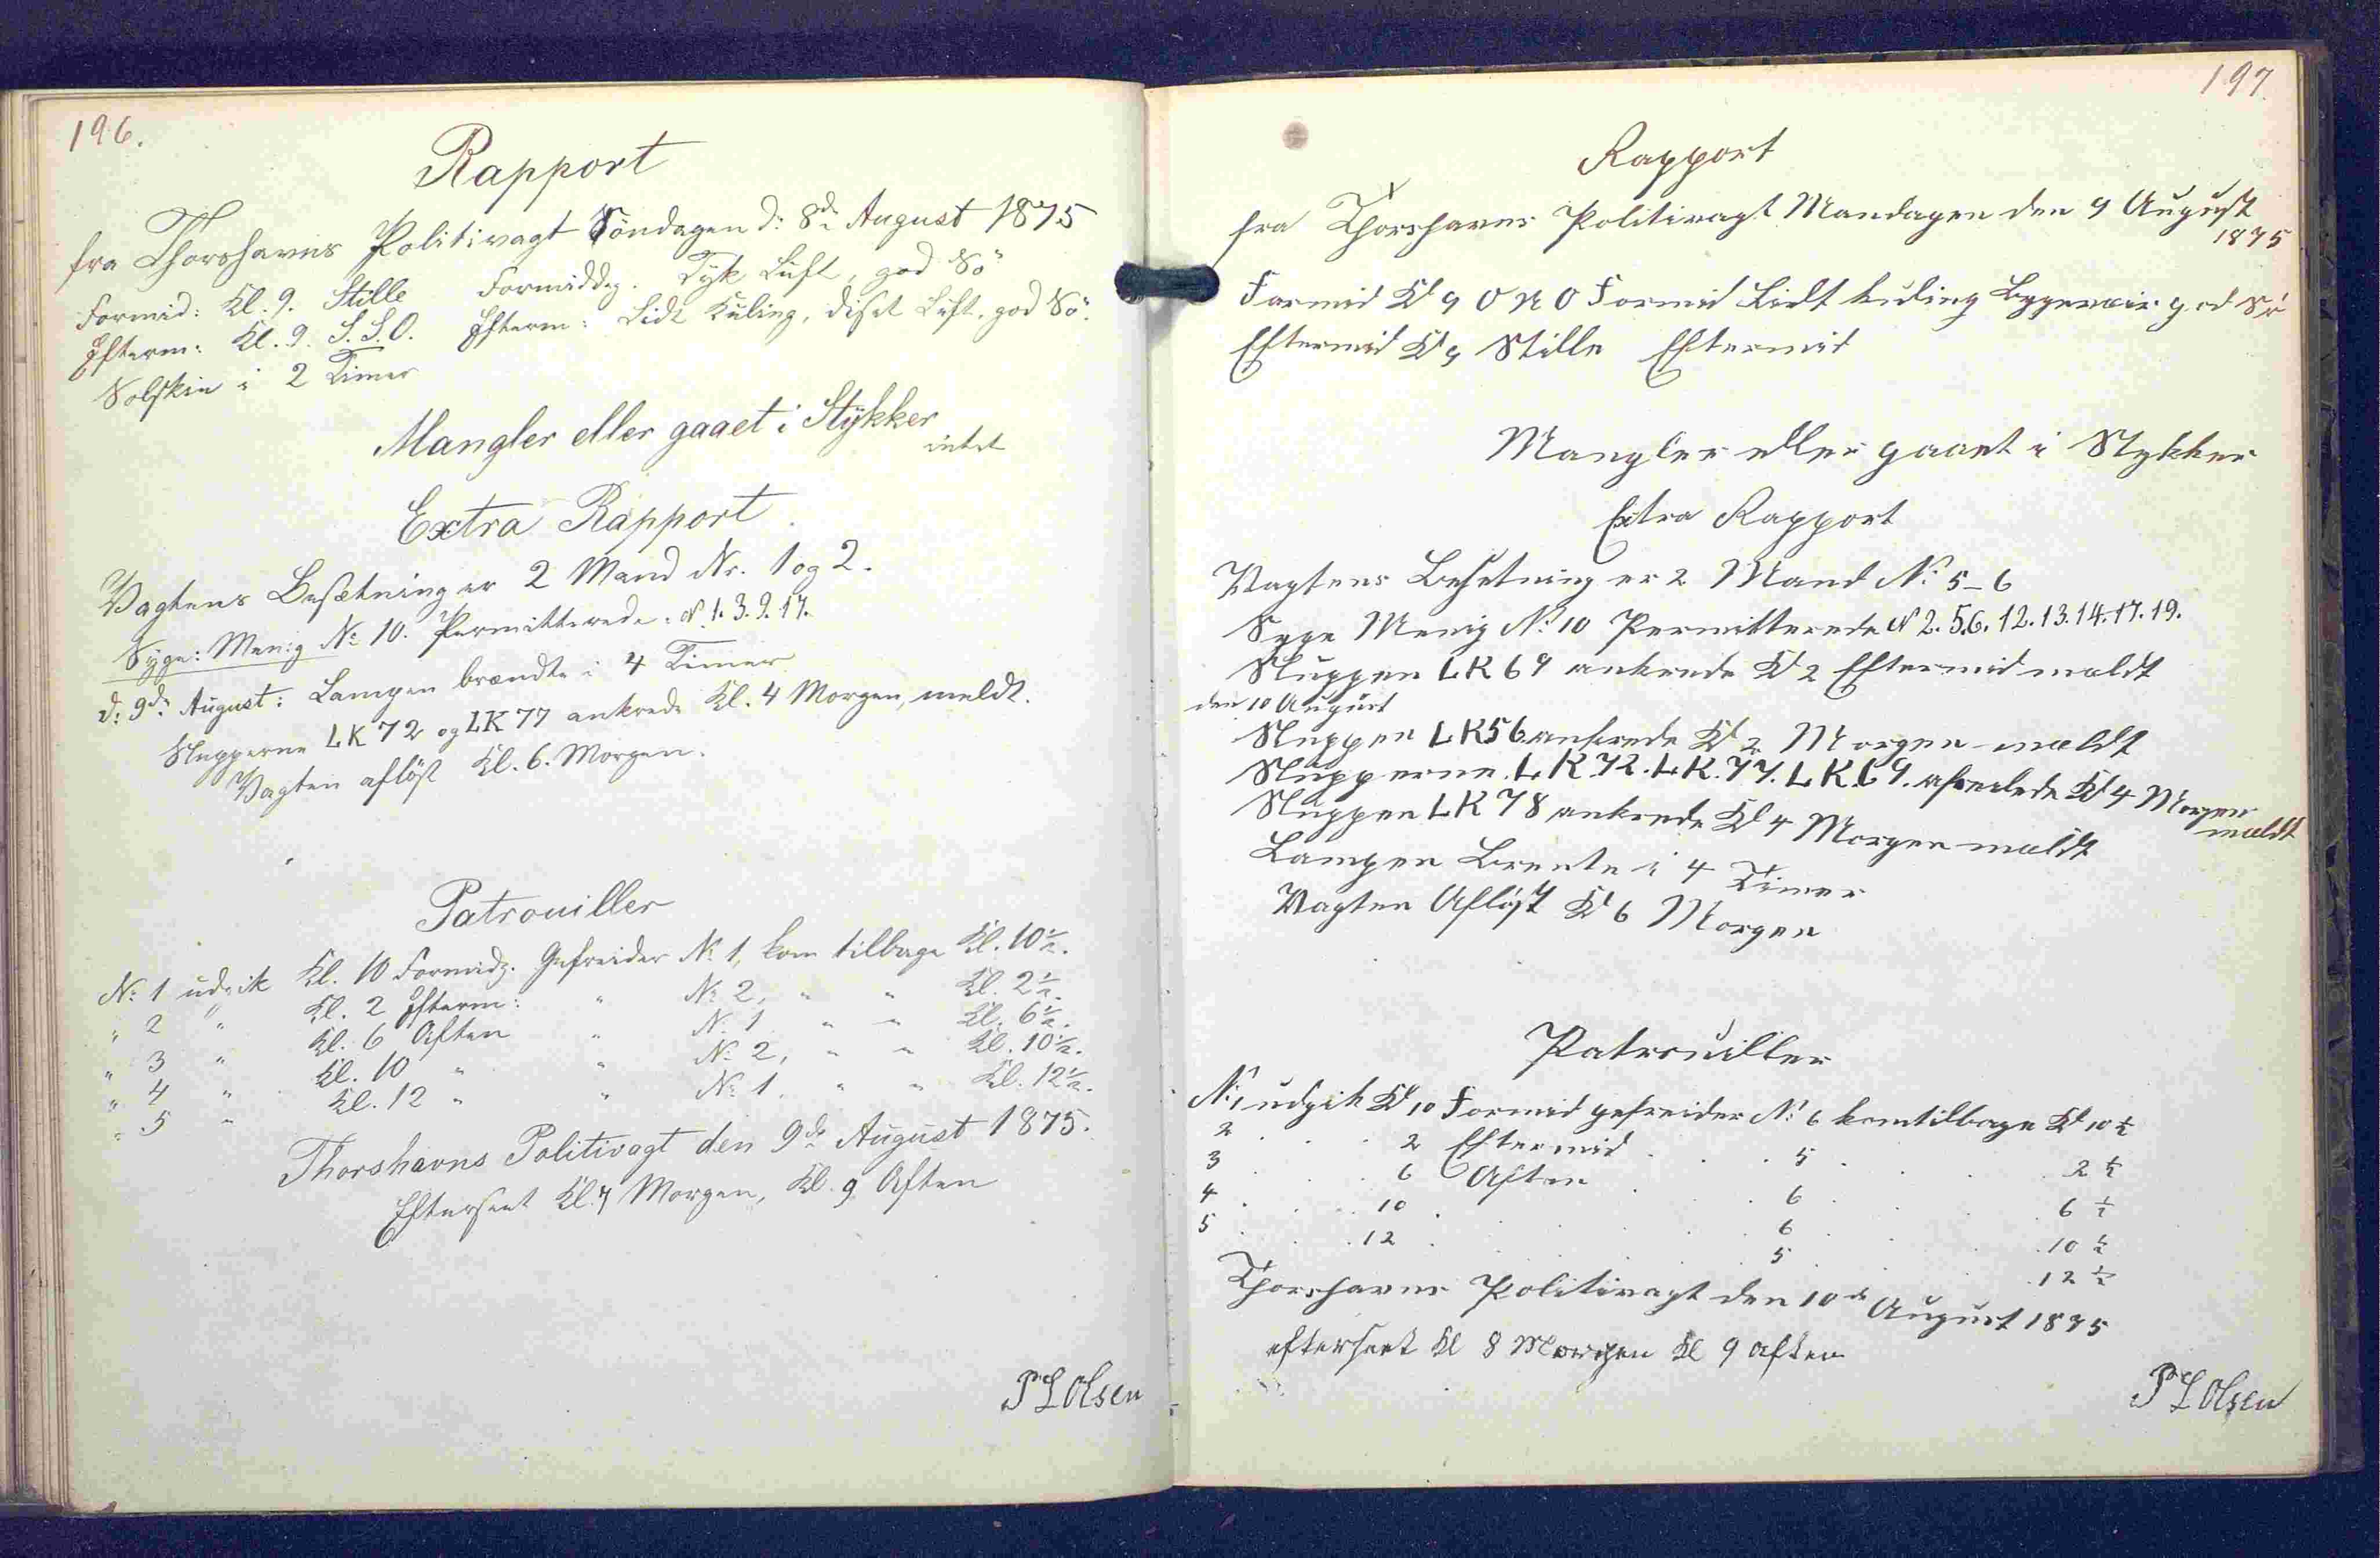 196.
Rapport
fra Thorshavns Politivagt Söndagen d: 8de August 1875
Formid: Kl. 9. Stille Formiddg. Tyk Luft, god Sö
Efterm: Kl. 9. S.S.O. Efterm: Lidt Kuling, diset Luft, god Sö.
Solskin i 2 Timer
Mangler eller gaaet i Stykker
intet
Extra Rapport
Vagtens Besætning er 2 Mand Nr. 1 og 2.
Syge: Menig No 10. Permitterede: N 1. 3. 9. 17.
d: 9de August: Lampen brændte i 4 Timer
Slupperne LK 72 og LK 77 ankrede Kl. 4 Morgen, meldt.
Vagten aflöst Kl. 6. Morgen.
Patrouiller
No 1 udgik Kl. 10 Formidg. Gefreider No 1, kom tilbage Kl. 10½.
" 2 " Kl. 2 Efterm: " No 2, " " Kl. 2½.
" 3 " Kl. 6 Aften " No 1 " " Kl. 6½.
" 4 " Kl. 10 " " No 2, " " Kl. 10½.
" 5 " Kl. 12 " " No 1. " " Kl. 12½.
Thorshavns Politivagt den 9de August 1875.
Efterseet Kl. 7 Morgen, Kl. 9 Aften
P L Olsen
197
Rapport
fra Thorshavns Politivagt Mandagen den 9 August
1875
Formid Kl 9 O N O Formid Lidt kuling Bygeveir god Sö
Eftermid Kl 9 Stille Eftermid
Mangler eller gaaet i Stykker
Extra Rapport
Vagtens Besetning er 2 Mand No 5-6
Syge Menig No 10 Permitterede N 2. 5.6. 12. 13. 14. 17. 19.
Sluppen LK 69 ankrede Kl 2 Eftermid mældt
den 10 August
Sluppen LK56 ankrede Kl 2 Morgen mældt
Slupperne LK.72. LK.77. LK.69. afseilede Kl 4 Morgen
mældt
Sluppen LK 78 ankrede Kl 4 Morgen mældt
Lampen Brente i 4 Timer
Vagten Aflöst Kl 6 Morgen
Patrouiller
No 1 udgik Kl 10 Formid gefreider No 6 kom tilbage Kl 10 ½
2 . . . 2 Eftermid . . 5 . . 2 ½
3 . . . 6 Aften . . 6 . . 6 ½
4 . . . 10 . . . 6 . . 10 ½
5 . . . 12 . . . 5 . . 12 ½
Thorshavns Politivagt den 10de August 1875
efterseet Kl 8 Morgen Kl 9 aften
P L Olsen